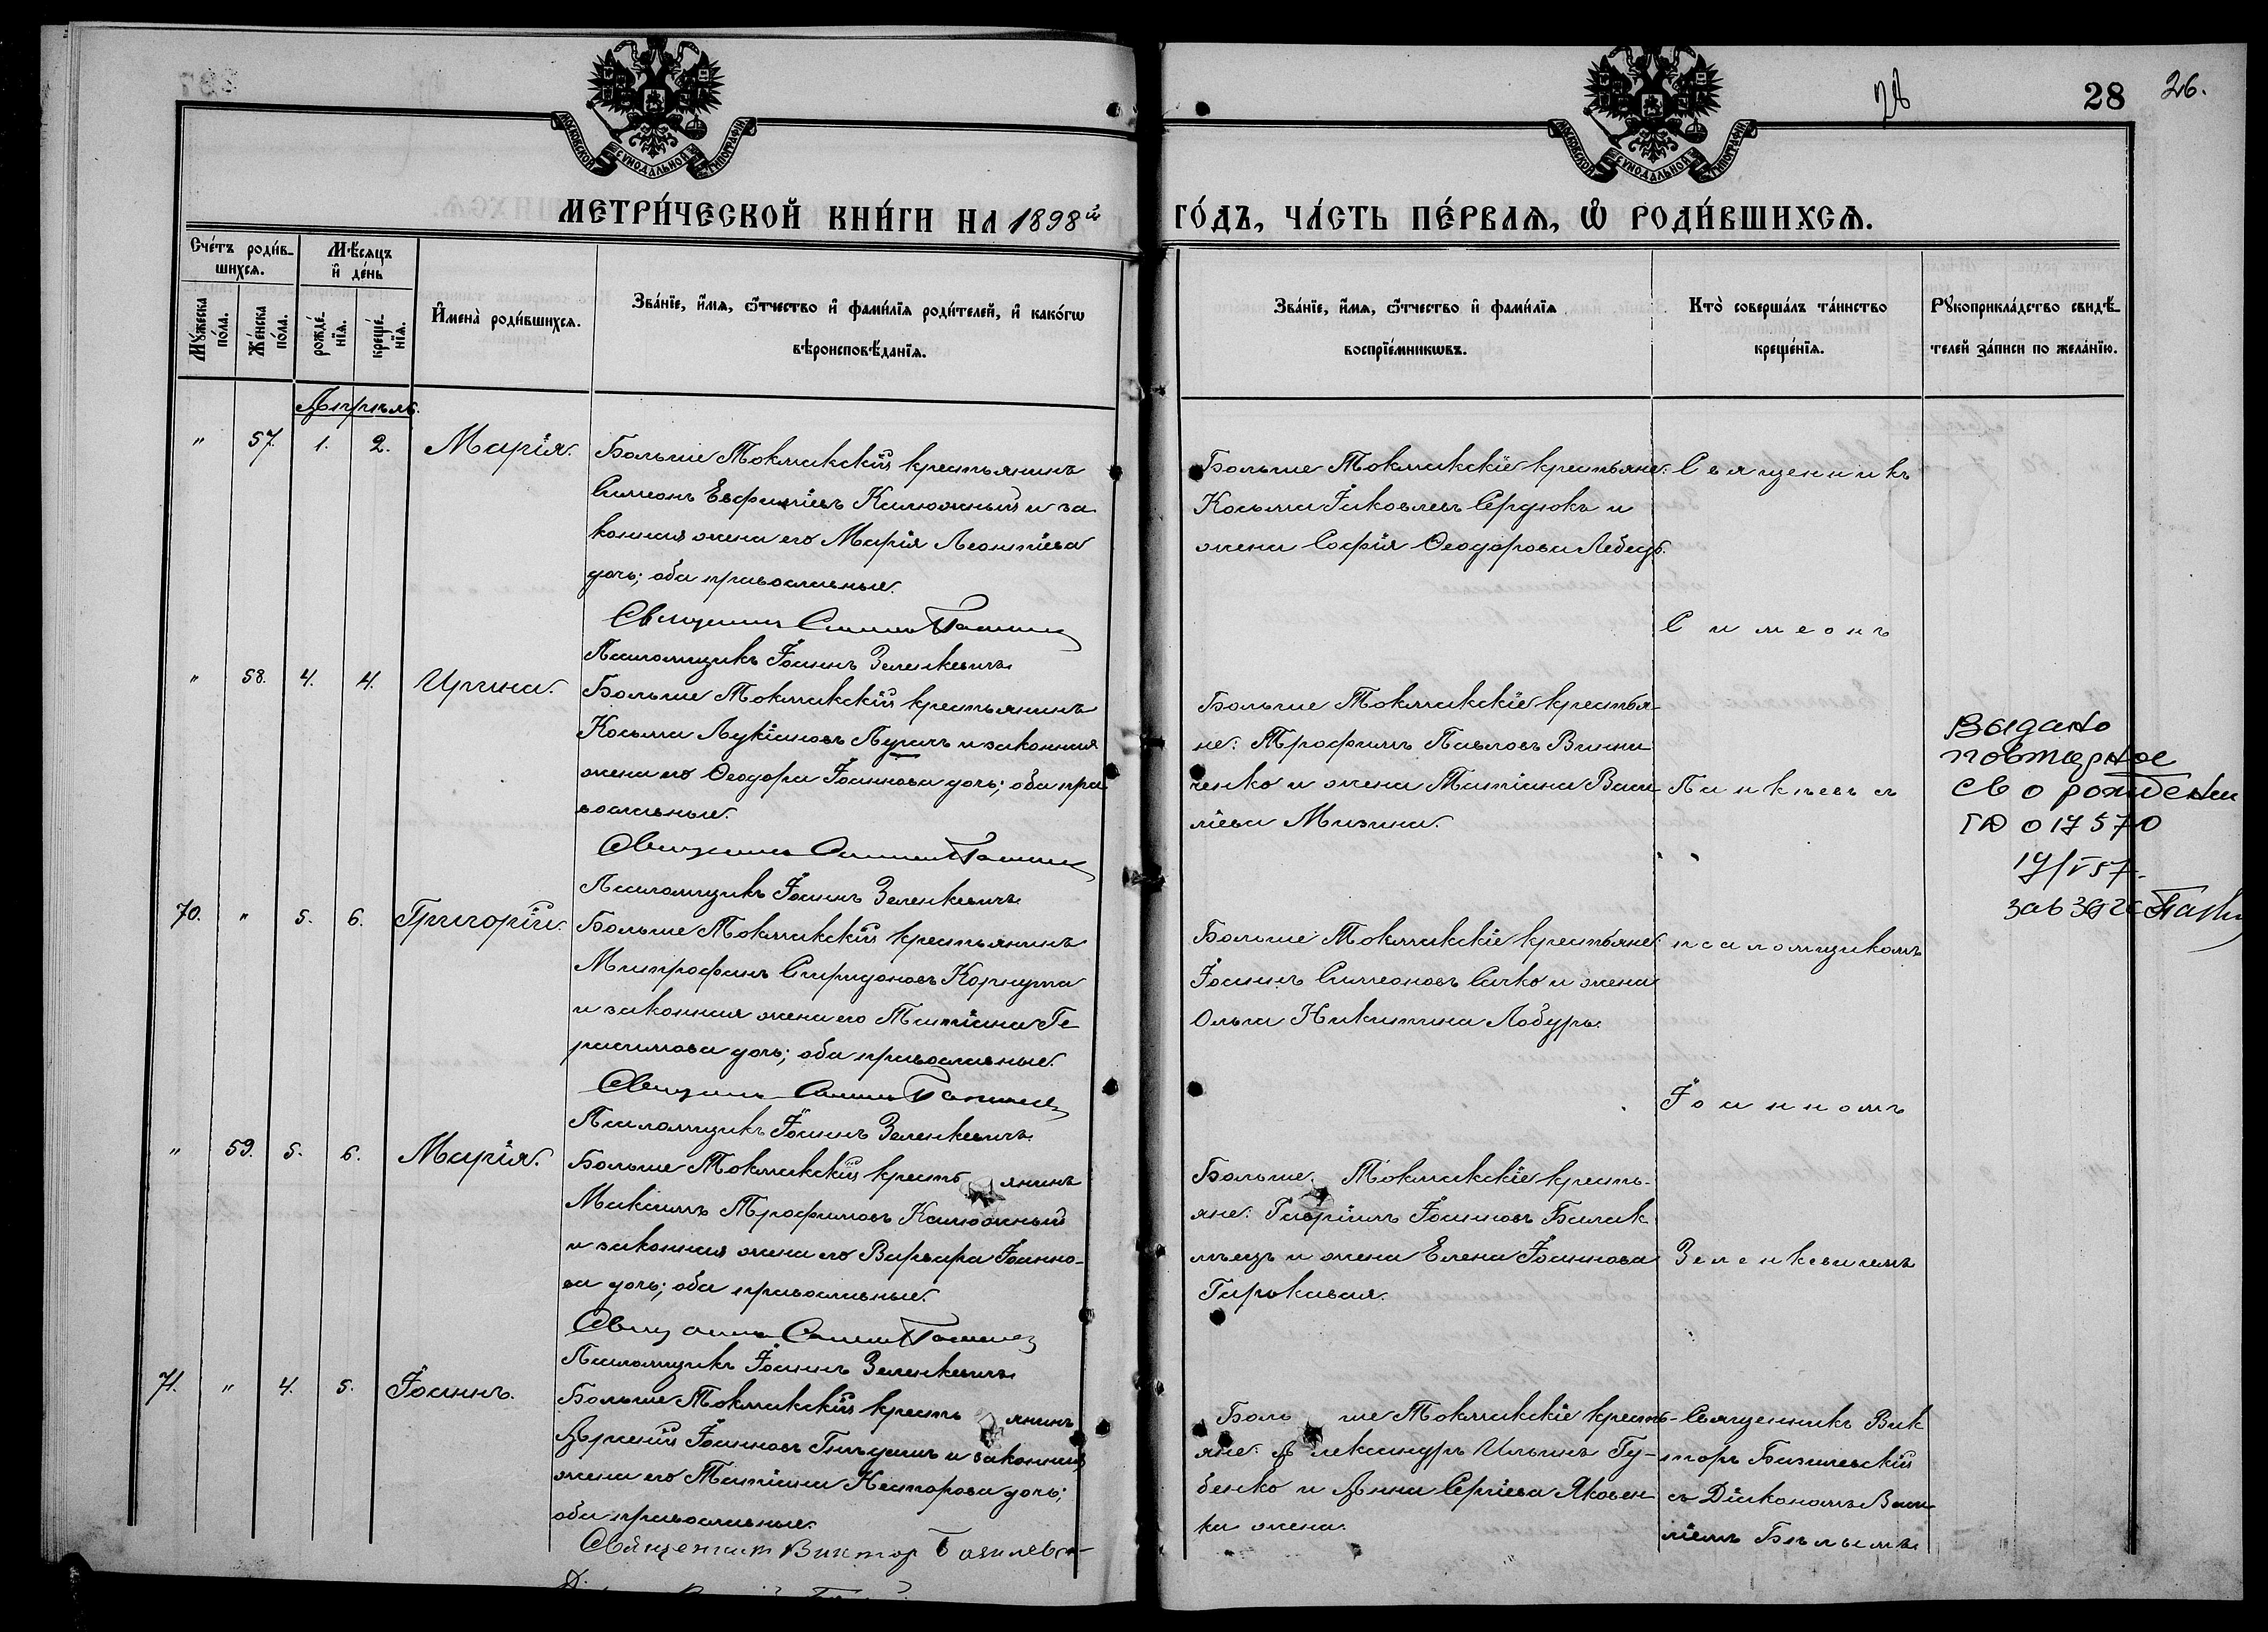 28
28
26.
МОСКОВСКОЙ СѴНОДАЛЬНОЙ ТИПОГРАФІИ
МОСКОВСКОЙ СѴНОДАЛЬНОЙ ТИПОГРАФІИ
МЕТРИ́ЧЕСКОЙ КНИ́ГИ НА 1898й
ГО́ДЪ, ЧА́СТЬ ПЕ́РВАѦ, Ѡ҆ РОДИ́ВШИХСѦ.
Сче́тъ роди́в-
шихсѧ.
Мꙋ́жеска по́ла.
Же́нска по́ла.
Мѣ́сѧцъ
и҆ де́нь
рожде́-
нїѧ.
креще́-
нїѧ.
И҆мена̀ роди́вшихсѧ.
Зва́нїе, и҆́мѧ, ѻ҆́тчество и҆ фами́лїѧ роди́телей, и҆ како́гѡ
вѣроисповѣ́данїѧ.
Зва́нїе, и҆́мѧ, ѻ҆́тчество и҆ фами́лїѧ
воспрїе́мникѡвъ.
Кто̀ соверша́лъ та́инство
креще́нїѧ.
Рꙋкоприкла́дство свидѣ́-
телей за́писи по жела́нїю.
Апрѣль.
" 57. 1. 2. Марія.
Больше Токмакскій крестьянинъ
Симеонъ Евфиміевъ Калюжный и за
конная жена его Марія Леонтіева
дочь; оба православные.
Священникъ Симеонъ
Псаломщикъ Іоаннъ Зеленкевичъ
Больше Токмакскіе крестьяне:
Косьма Іаковлевъ Сердюкъ и
жена Софія Ѳеодорова Лебедь.
Священникъ
Симеонъ
" 58. 4. 4. Ирина.
Больше Токмакскій крестьянинъ
Косьма Лукіановъ и законная
жена его Ѳеодора Іоаннова дочь; оба пра
вославные.
Священникъ Симеонъ
Псаломщикъ Іоаннъ Зеленкевичъ
Больше Токмакскіе крестья-
не: Трофимъ Павловъ Винни
ченко и жена Татіана Васи
ліева Мизина.
съ
Выдано
повторное
св о рождении
017570
19/V 57.
зав загс
70. " 5. 6. Григорій.
Больше Токмакскій крестьянинъ
Митрофанъ Спиридоновъ Корнута
и законная жена его Татіана Ге
расимова дочь; оба православные.
Священникъ Симеонъ
Псаломщикъ Іоаннъ Зеленкевичъ
Больше Токмакскіе крестьяне:
Іоаннъ Симеоновъ Сичко и жена
Ольга Никитина Лобурь.
псаломщикомъ
Іоанномъ
" 59. 5. 6. Марія.
Больше Токмакскій кресть янинъ
Максимъ Трофимовъ Калюжный
и законная жена его Варвара Іоанно-
ва дочь; оба православные.
Священникъ Симеонъ
Псаломщикъ Іоаннъ Зеленкевичъ
Больше Токмакскіе кресть-
яне: Гавріилъ Іоанновъ
и жена Елена Іоаннова
Зеленкевичемъ
71. " 4. 5. Іоаннъ.
Больше Токмакскій кресть янинъ
Арсеній Іоанновъ и законная
жена его Татіана Несторова дочь;
оба православные.
Священникъ Викторъ Базилевск
Боль ше Токмакскіе кресть-
яне: Александръ Ильинъ Гу-
бенко и Анна Сергіева Яковен
ка жена.
Священникъ Вик
торъ Базилевскій
съ Діакономъ Васи
ліемъ Бѣлымъ.